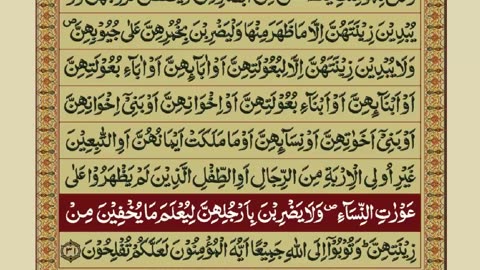 يُبْدِيْنَ زِيْنَتَهُنَّ اِلَّا مَا ظَهَرَ مِنْهَا وَلْيَضْرِبْنَ بِخُمُرِهِنَّ عَلٰى جُيُوْبِهِنَّ ۪
وَلَا يُبْدِيْنَ زِيْنَتَهُنَّ اِلَّا لِبُعُوْلَتِهِنَّ اَوْ اٰبَآىِٕهِنَّ اَوْ اٰبَآءِ بُعُوْلَتِهِنَّ
اَوْ اَبْنَآىِٕهِنَّ اَوْ اَبْنَآءِ بُعُوْلَتِهِنَّ اَوْ اِخْوَانِهِنَّ اَوْ بَنِيْۤ اِخْوَانِهِنَّ
اَوْ بَنِيْۤ اَخَوٰتِهِنَّ اَوْ نِسَآىِٕهِنَّ اَوْ مَا مَلَكَتْ اَيْمَانُهُنَّ اَوِ التّٰبِعِيْنَ
غَيْرِ اُولِي الْاِرْبَةِ مِنَ الرِّجَالِ اَوِ الطِّفْلِ الَّذِيْنَ لَمْ يَظْهَرُوْا عَلٰى
عَوْرٰتِ النِّسَآءِ ۪ وَلَا يَضْرِبْنَ بِاَرْجُلِهِنَّ لِيُعْلَمَ مَا يُخْفِيْنَ مِنْ
زِيْنَتِهِنَّ ؕ وَتُوْبُوْۤا اِلَى اللّٰهِ جَمِيْعًا اَيُّهَ الْمُؤْمِنُوْنَ لَعَلَّكُمْ تُفْلِحُوْنَ ۝۳۱